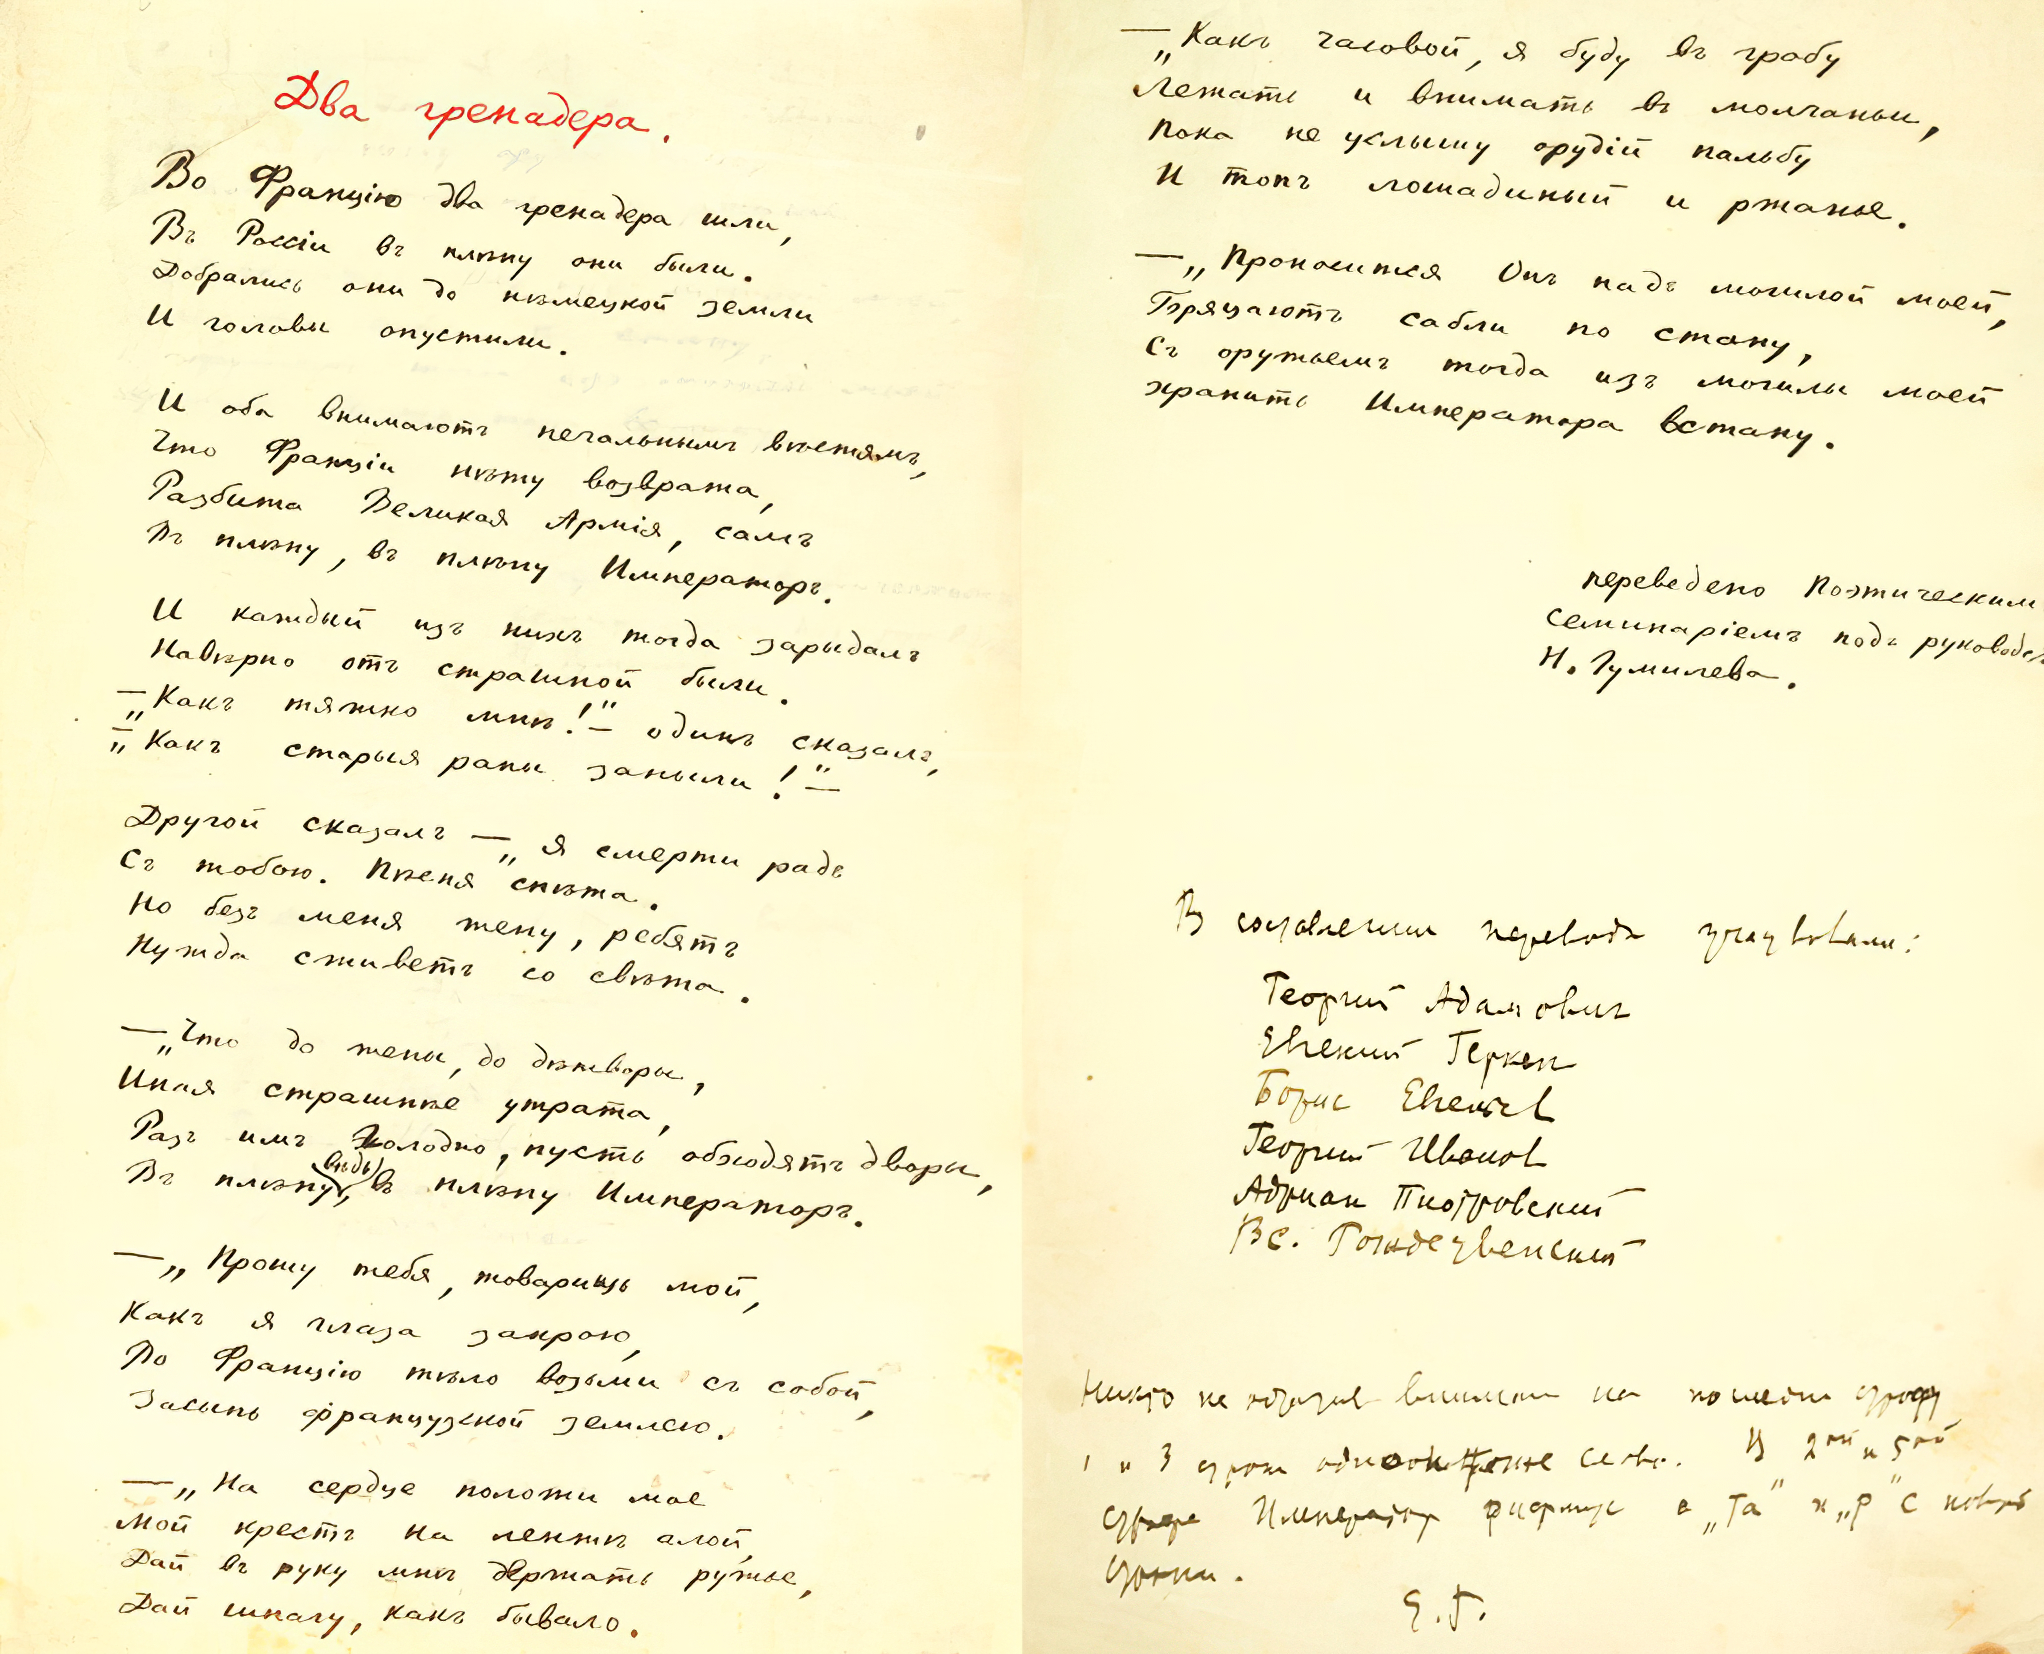 Два гренадера.
Во Францію два гренадера шли,
Въ Россіи въ плѣну они были.
Добрались они до нѣмецкой земли
И головы опустили.
И оба внимаютъ печальнымъ вѣстямъ,
Что Франціи нѣту возврата,
Разбита Великая Армія, самъ
Въ плѣну, въ плѣну Императоръ.
И каждый изъ нихъ тогда зарыдалъ
Навѣрно отъ страшной были.
— „Какъ тяжко мнѣ!“ — одинъ сказалъ,
— „Какъ старыя раны заныли!“ —
Другой сказалъ — „я смерти радъ
Съ тобою. Пѣсня спѣта.
Но безъ меня жену, ребятъ
Нужда сживетъ со свѣта.
— „Что до жены, до дѣтворы,
Иная страшнѣе утрата,
Разъ имъ холодно, пусть обходятъ дворы,
Въ плѣну вѣдь, въ плѣну Императоръ.
— „Прошу тебя, товарищь мой,
Какъ я глаза закрою,
Во Францію тѣло возьми съ собой,
Засыпь французской землею.
— „На сердце положи мое
Мой крестъ на лентѣ алой,
Дай въ руку мнѣ держать ружье,
Дай шпагу, какъ бывало.
— „Какъ часовой, я буду въ гробу
Лежать и внимать въ молчаньи,
Пока не услышу орудій пальбу
И топъ лошадиный и ржанье.
— „Проносится Онъ надъ могилой моей,
Бряцаютъ сабли по стану,
Съ оружьемъ тогда изъ могилы моей
Хранить Императора встану.
переведено Поэтическим
семинаріемъ подъ руковод
Н. Гумилева.
В составлении перевода участвовали:
Георгий Адамович
Евгений Геркен
Борис Евгеньев
Георгий Иванов
Адриан Пиотровский
Вс. Рождественский
Никто не обратил внимания на последн строфу
1 и 3 строки одно и тоже слово. В 2ой и 5ой
строфе Император рифмует с „та“ и „р“ с новой
строки.
Е.Г.